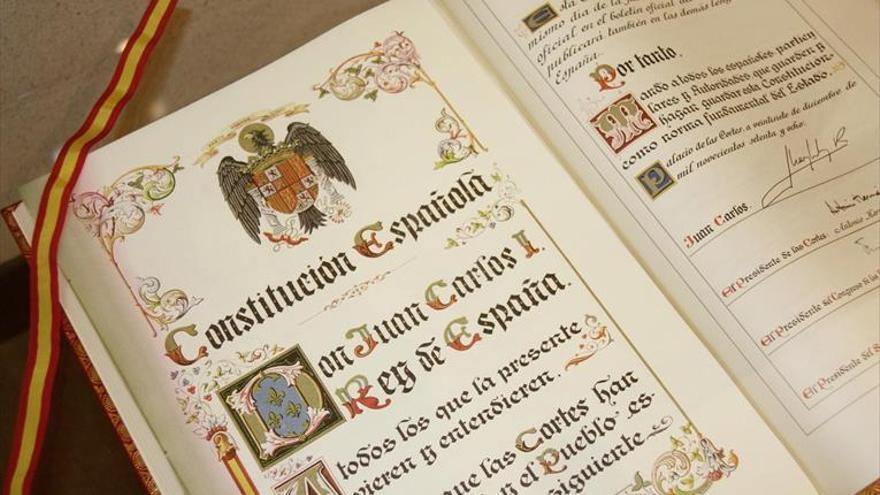 Constitución Española
Don Juan Carlos I.
Rey de España.
A todos los que la presente
vieren y entendieren.
que las Cortes han
y el Pueblo es-
siguiente
mismo día de la
oficial en el boletín oficial del
publicará también en las demás leng
España.
Por tanto.
Mando a todos los españoles, particu
lares y Autoridades que guarden y
hagan guardar esta Constitución
como norma fundamental del Estado.
Palacio de las Cortes, a veintisiete de diciembre de
mil novecientos setenta y ocho.
Juan Carlos.
El Presidente de las Cortes.
Antonio Her
El Presidente del Congreso de los
El Presidente del S